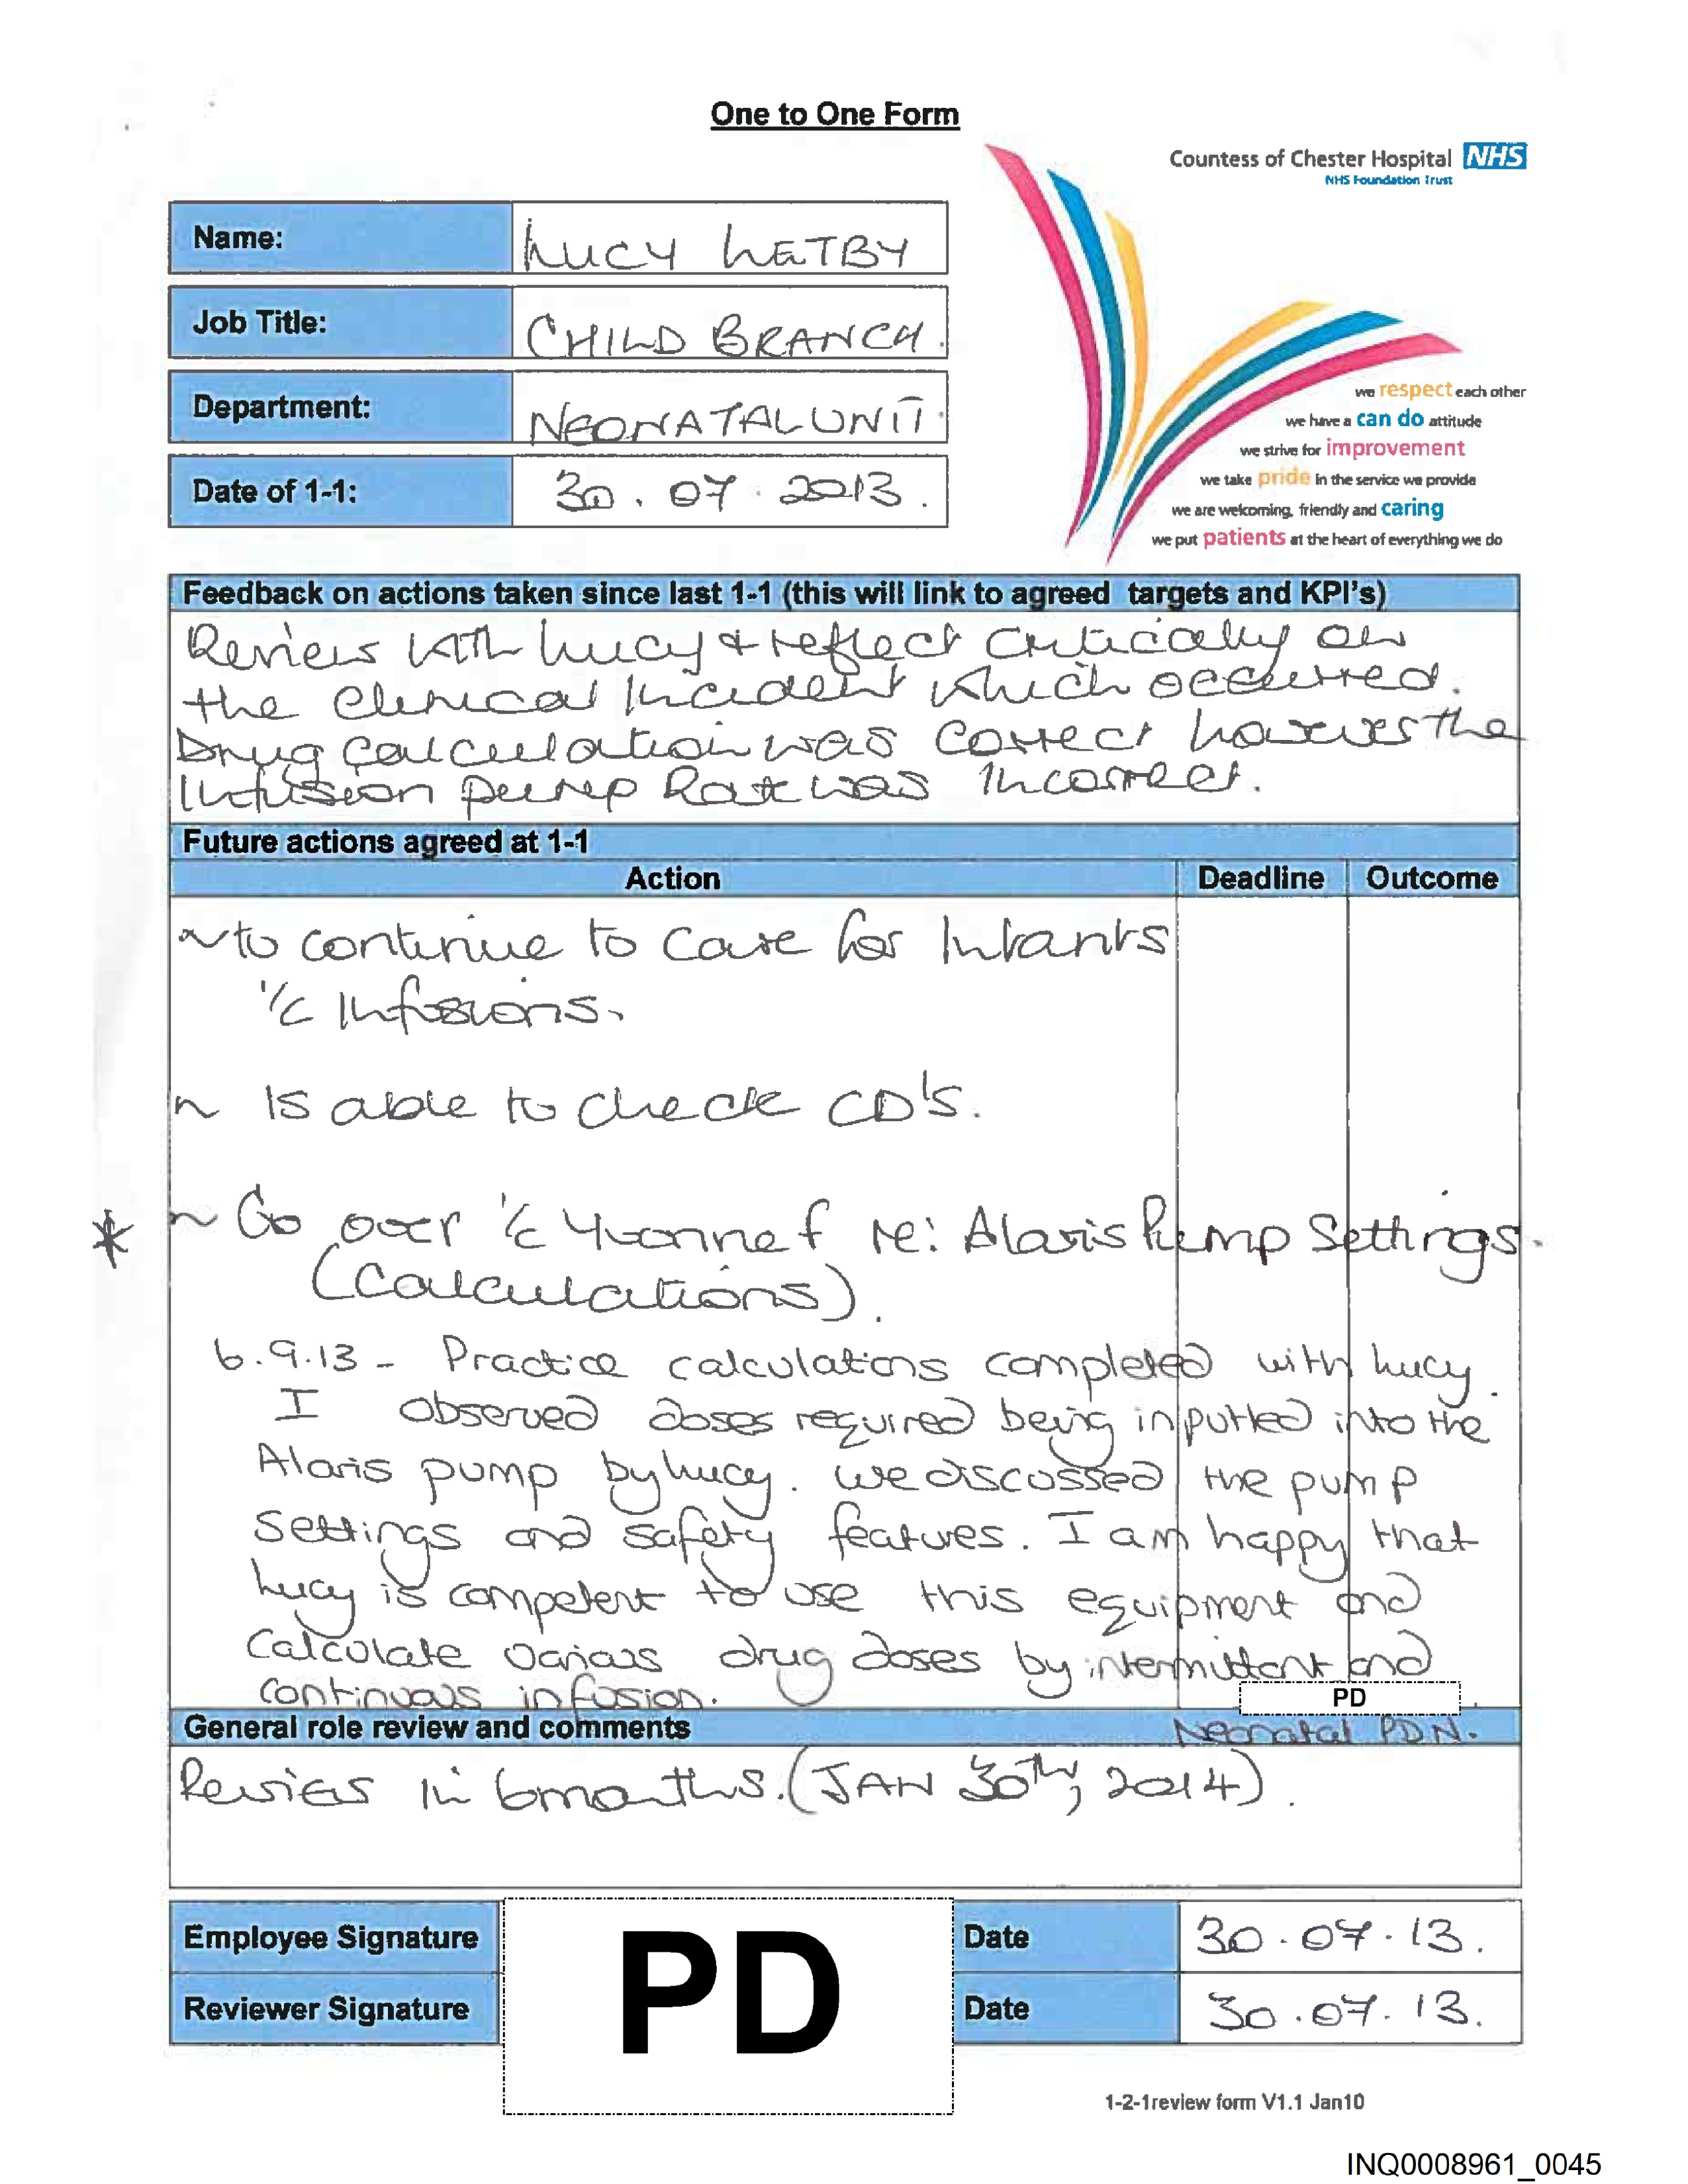 One to One Form
Countess of Chester Hospital NHS
NHS Foundation Trust
Name: LUCY LETBY
Job Title: CHILD BRANCH.
Department: NEONATAL UNIT.
Date of 1-1: 30.07.2013.
we respect each other
we have a can do attitude
we strive for improvement
we take pride in the service we provide
we are welcoming, friendly and caring
we put patients at the heart of everything we do
Feedback on actions taken since last 1-1 (this will link to agreed targets and KPI's)
Review with Lucy & reflect critically on
the clinical Incident which occurred.
Drug calculation was correct however the
Infusion pump Rate was Incorrect.
Future actions agreed at 1-1
Action Deadline Outcome
~ to continue to care for Infants
c̄ Infusions.
~ Is able to check CD's.
* ~ Go over c̄ Yvonne f re: Alaris Pump Settings.
(Calculations).
6.9.13 - Practice calculations completed with Lucy.
I observed doses required being inputted into the
Alaris pump by Lucy. We discussed the pump
settings and safety features. I am happy that
Lucy is competent to use this equipment and
Calculate various drug doses by intermittent and
continuous infusion.
PD
General role review and comments Neonatal PDN.
Review in 6 months. (JAN 30th, 2014).
Employee Signature PD Date 30.07.13.
Reviewer Signature Date 30.07.13.
1-2-1review form V1.1 Jan10
INQ0008961_0045